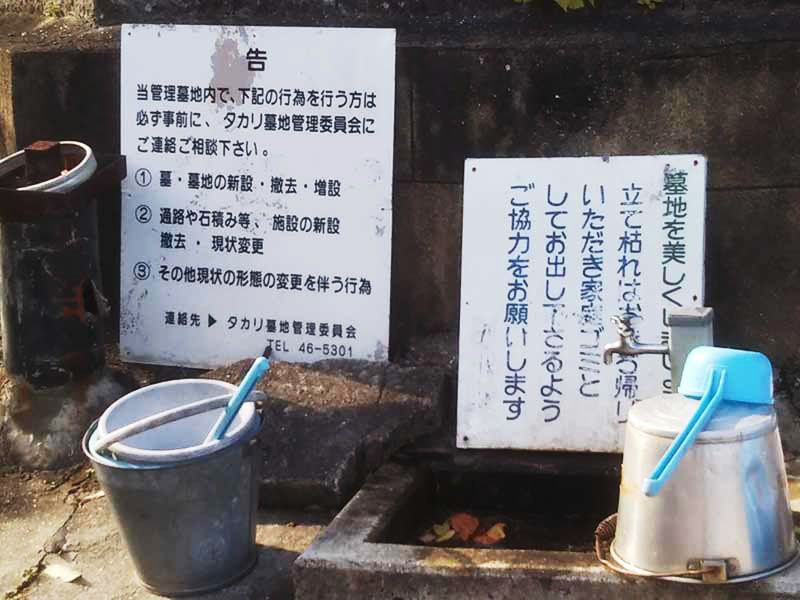 告
当管理墓地内で、下記の行為を行う方は
必ず事前に、タカリ墓地管理委員会に
ご連絡ご相談下さい。
① 墓・墓地の新設・撤去・増設
② 通路や石積み等、施設の新設
撤去・現状変更
③ その他現状の形態の変更を伴う行為
連絡先▶タカリ墓地管理委員会
TEL 46-5301
墓地を美しくしましょ
立て枯れはお帰り
いただき家庭ごと
してお出し下さるよう
ご協力をお願いします